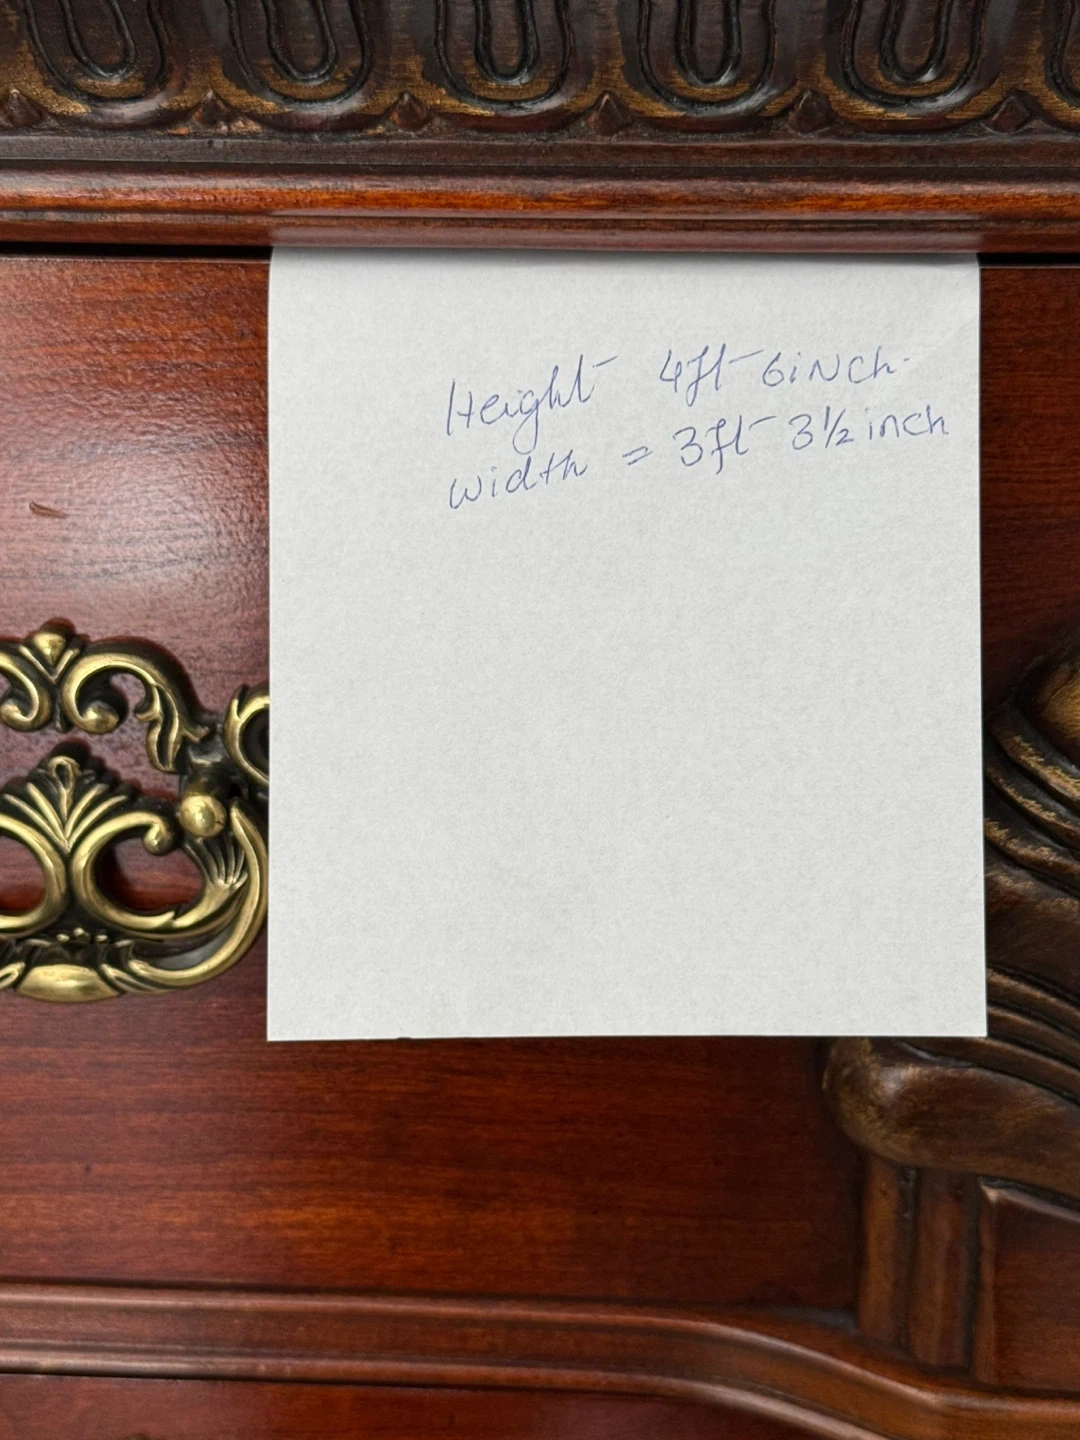 Height - 4ft - 6inch.
width = 3ft - 3½ inch